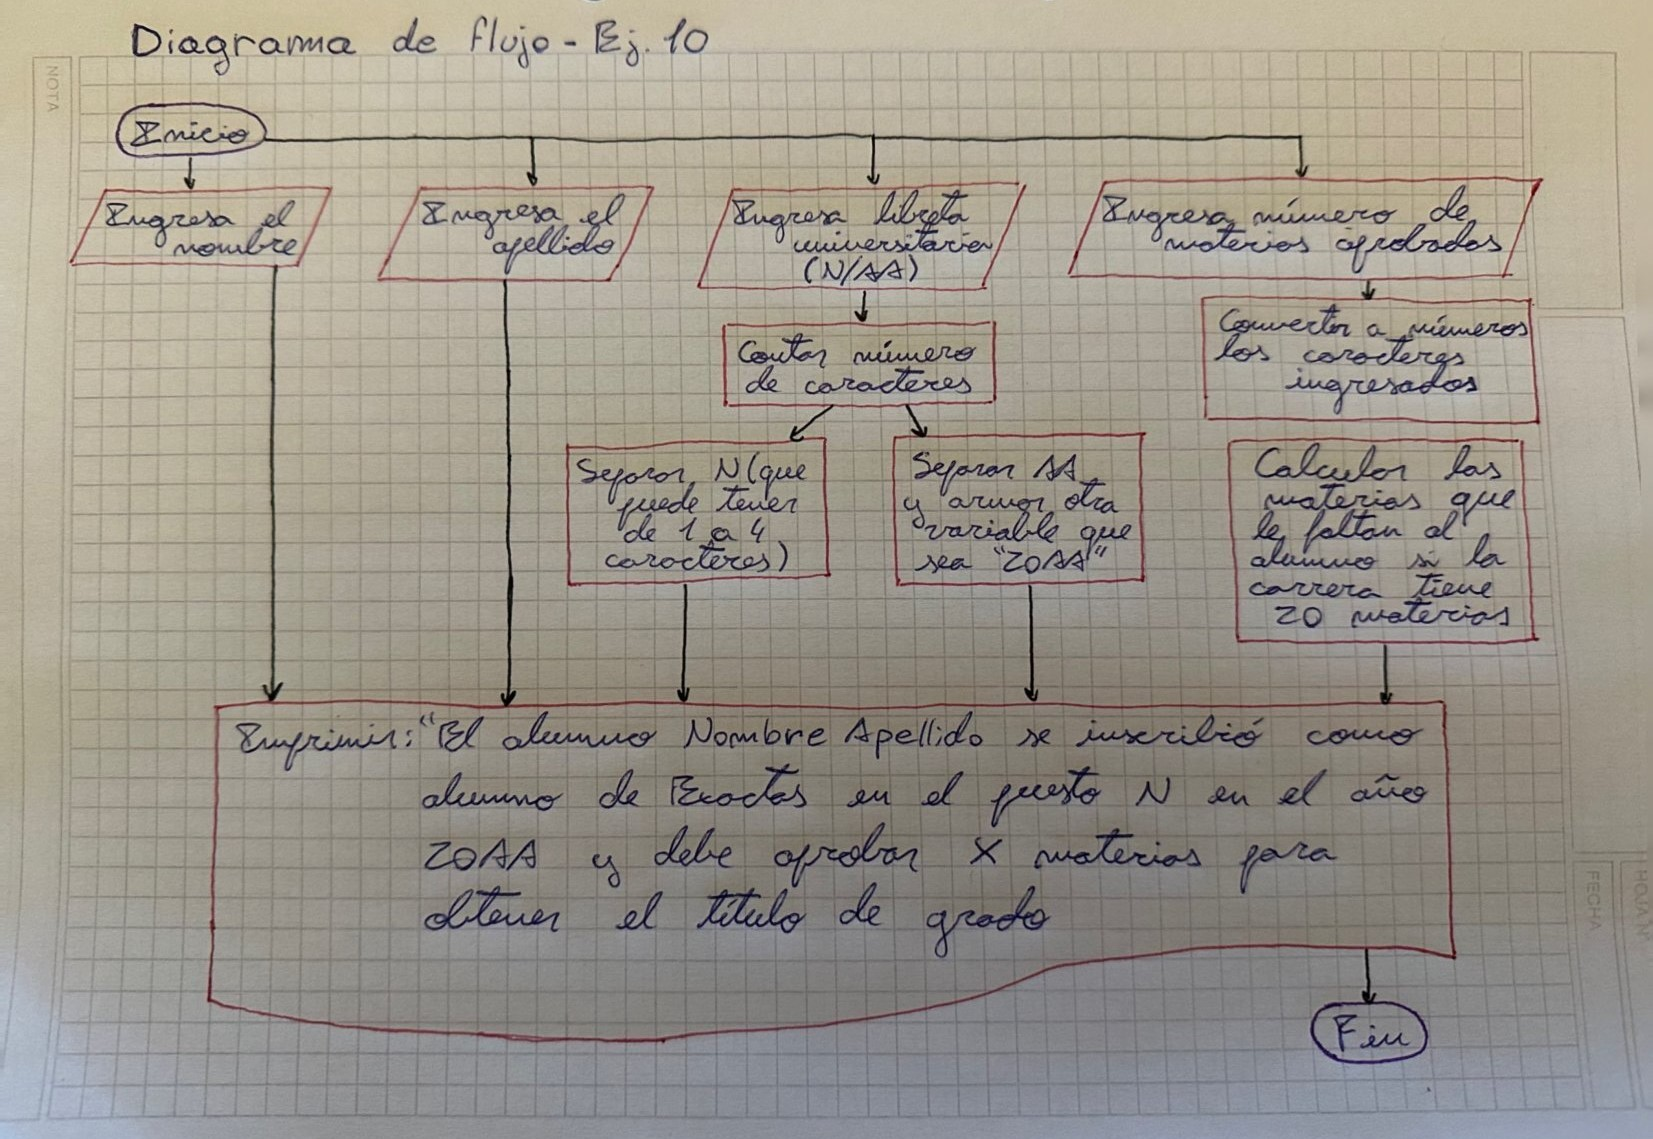 Diagrama de flujo - Ej. 10
NOTA
Inicio
Ingresa el
nombre
Ingresa el
apellido
Ingresa libreta
universitaria
(N/AA)
Ingresa número de
materias aprobadas
Contar número
de caracteres
Convertir a números
los caracteres
ingresados
Separar N (que
puede tener
de 1 a 4
caracteres)
Separar AA
y armar otra
variable que
sea "20AA"
Calcular las
materias que
le faltan al
alumno si la
carrera tiene
20 materias
Imprimir: "El alumno Nombre Apellido se inscribió como
alumno de Exactas en el puesto N en el año
20AA y debe aprobar X materias para
obtener el título de grado
Fin
FECHA
HOJA Nº